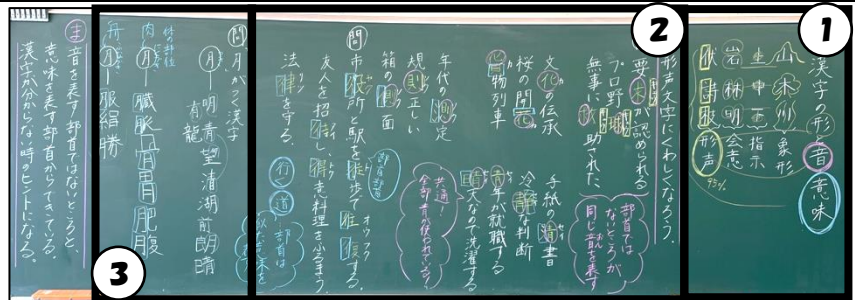 1
漢字の形と音 意味
山 木 川 象形
上 中 下 指示
岩 林 明 会意
形声
95%
2
形声文字にくわしくなろう。
要求が認められる
プロ野球
無事に救助された。
部首では
ないところが
同じ音を表す
文化の伝承
桜の開花
貨物列車
手紙の清書
冷静な判断
青年が就職する
晴天なので洗濯する
共通!
全部青が使われている!
年代の測定
規則正しい
箱の側面
問
市役所と駅を徒歩で往復する。
オウフク
友人を招待し、得意料理をふるまう。
法律を守る。
行 道
部首は
似た意味を
3
問 月がつく漢字
月 明 青 望 清 湖 前 朗 晴
有 龍
体の部位
肉 月 臓 脈 背 胃 肥 腹
舟 月 服 絹 勝
ま
音を表す部首ではないところと、
意味を表す部首からできている。
漢字が分からない時のヒントになる。